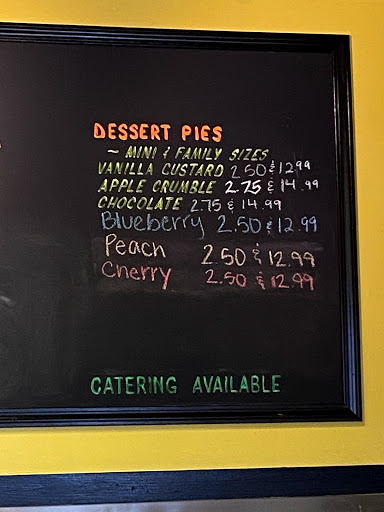 DESSERT PIES
~ MINI & FAMILY SIZES
VANILLA CUSTARD 2.50 & 12.99
APPLE CRUMBLE 2.75 & 14.99
CHOCOLATE 2.75 & 14.99
Blueberry 2.50 & 12.99
Peach 2.50 & 12.99
Cherry 2.50 & 12.99
CATERING AVAILABLE